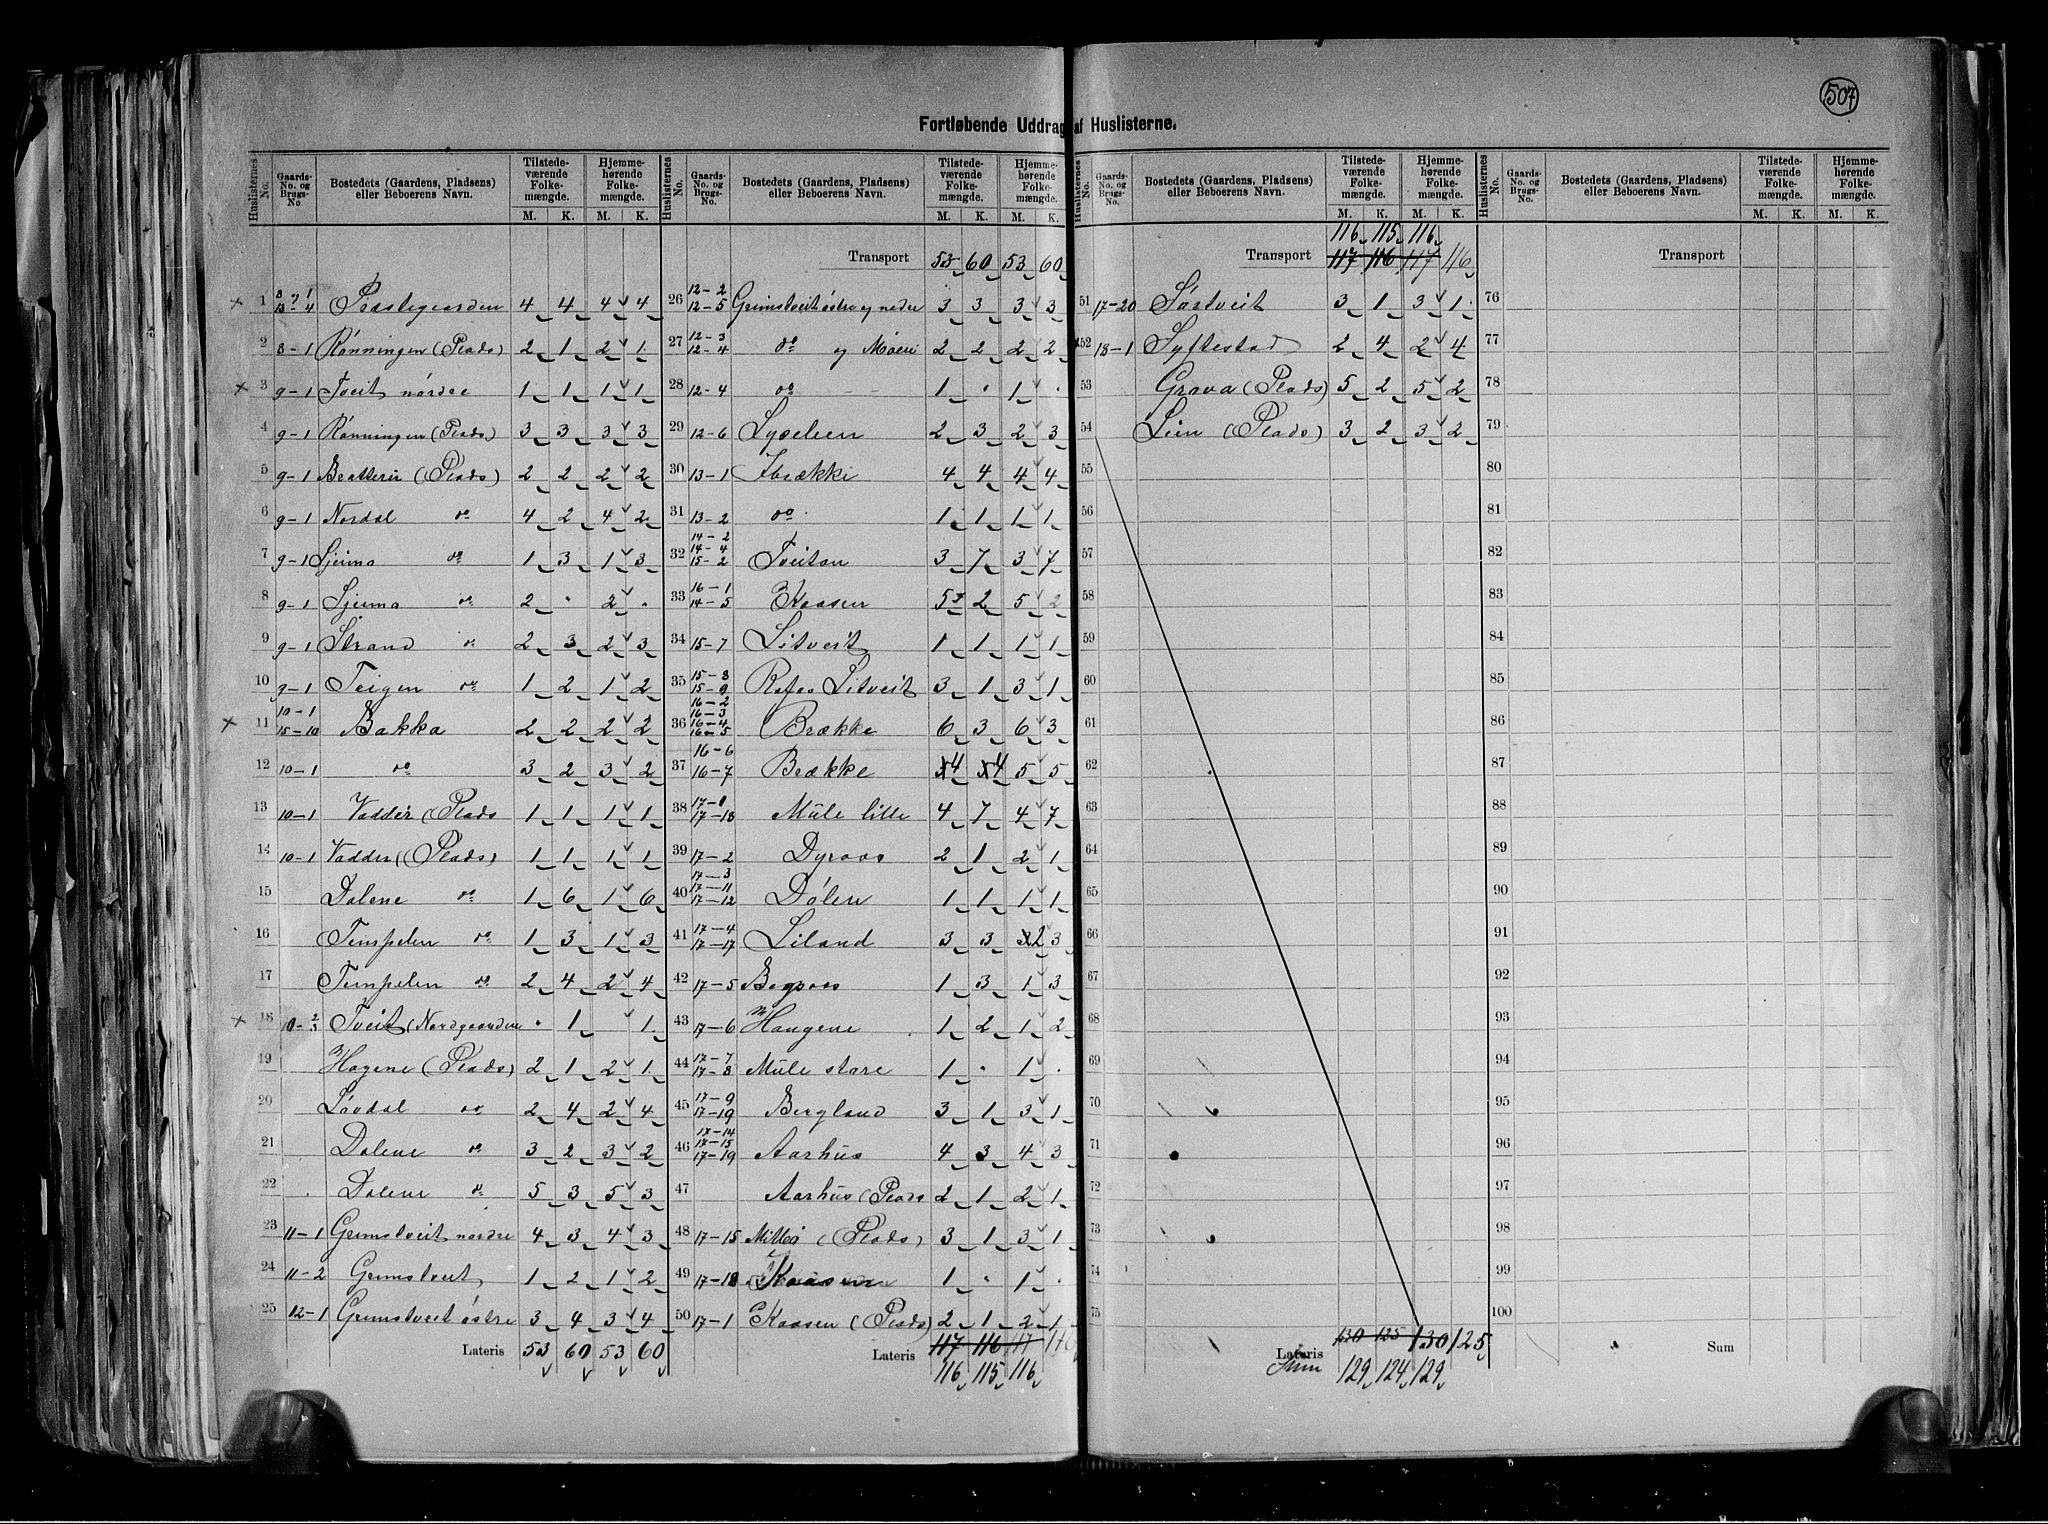 507
Fortløbende Uddrag af Huslisterne.
Huslisternes No. | Gaards-No. og Brugs-No. | Bostedets (Gaardens, Pladsens) eller Beboerens Navn. | Tilstedeværende Folkemængde. M. K. | Hjemmehørende Folkemængde. M. K.
1 | 13-4 | Præstegaarden | 4 | 4 | 4 | 4
2 | 8-1 | Rønningen (Plads) | 2 | 1 | 2 | 1
3 | 9-1 | Tveit nordre | 1 | 1 | 1 | 1
4 | 9-1 | Rønningen (Plads) | 3 | 3 | 3 | 3
5 | 9-1 | (Plads) | 2 | 2 | 2 | 2
6 | 9-1 | Nordal do | 4 | 2 | 4 | 2
7 | 9-1 | do | 1 | 3 | 1 | 3
8 | 9-1 | do | 2 | . | 2 | .
9 | 9-1 | Strand do | 2 | 3 | 2 | 3
10 | 9-1 | Teigen do | 1 | 2 | 1 | 2
11 | 10-1 15-10 | Bakka | 2 | 2 | 2 | 2
12 | 10-1 | do | 3 | 2 | 3 | 2
13 | 10-1 | Vadder (Plads | 1 | 1 | 1 | 1
14 | 10-1 | Vadder (Plads) | 1 | 1 | 1 | 1
15 | Dalene do | 1 | 6 | 1 | 6
16 | Tempelen do | 1 | 3 | 1 | 3
17 | Tempelen do | 2 | 4 | 2 | 4
18 | 10-2 3 | Tveit (Nordgaarden | . | 1 | | 1
19 | Hagene (Plads) | 2 | 1 | 2 | 1
20 | Løvdal do | 2 | 4 | 2 | 4
21 | Dalene do | 3 | 2 | 3 | 2
22 | Dalene do | 5 | 3 | 5 | 3
23 | 11-1 | Grimstveit nordre | 4 | 3 | 4 | 3
24 | 11-2 | Grimstveit | 1 | 2 | 1 | 2
25 | 12-1 | Grimstveit østre | 3 | 4 | 3 | 4
Lateris 53 60 53 60
Huslisternes No. | Gaards-No. og Brugs-No. | Bostedets (Gaardens, Pladsens) eller Beboerens Navn. | Tilstedeværende Folkemængde. M. K. | Hjemmehørende Folkemængde. M. K.
Transport 53 60 53 60
26 | 12-2 12-5 | Grimstveit østre og nedre | 3 | 3 | 3 | 3
27 | 12-3 12-4 | do og Moen | 2 | 2 | 2 | 2
28 | 12-4 | do | 1 | . | 1 | .
29 | 12-6 | 2 | 3 | 2 | 3
30 | 13-1 | 4 | 4 | 4 | 4
31 | 13-2 | do | 1 | 1 | 1 | 1
32 | 14-2 14-4 15-2 | Tveitan | 3 | 7 | 3 | 7
33 | 16-1 14-5 | Kaasen | 5 | 2 | 5 | 2
34 | 15-7 | Litveit | 1 | 1 | 1 | 1
35 | 15-8 15-9 | Litveit | 3 | 1 | 3 | 1
36 | 16-2 16-3 16-4 16-5 | Brække | 6 | 3 | 6 | 3
37 | 16-6 16-7 | Brække | 4 | 4 | 5 | 5
38 | 17-18 | Mule lille | 4 | 7 | 4 | 7
39 | 17-2 | Dyraas | 2 | 1 | 2 | 1
40 | 17-3 17-11 17-12 | Dølen | 1 | 1 | 1 | 1
41 | 17-4 17-17 | Liland | 3 | 3 | 2 | 3
42 | 17-5 | 1 | 3 | 1 | 3
43 | 17-6 | Haugene | 1 | 2 | 1 | 2
44 | 17-7 17-8 | Mule store | 1 | . | 1 | .
45 | 17-9 17-19 | Bergland | 3 | 1 | 3 | 1
46 | 17-14 17-15 17-19 | Aarhus | 4 | 3 | 4 | 3
47 | Aarhus (Plads | 2 | 1 | 2 | 1
48 | 17-15 | (Plads) | 3 | 1 | 3 | 1
49 | 17-18 | Kaasen | 1 | . | 1 | .
50 | 17-1 | Kaasen (Plads) | 2 | 1 | 2 | 1
Lateris 117 116 117 116
116 115 116
Huslisternes No. | Gaards-No. og Brugs-No. | Bostedets (Gaardens, Pladsens) eller Beboerens Navn. | Tilstedeværende Folkemængde. M. K. | Hjemmehørende Folkemængde. M. K.
116 115 116
Transport 117 116 117 116
51 | 17-20 | Sørtveit | 3 | 1 | 3 | 1
52 | 18-1 | Syftestad | 2 | 4 | 2 | 4
53 | Grava (Plads) | 5 | 2 | 5 | 2
54 | Lien (Plads) | 3 | 2 | 3 | 2
55
56
57
58
59
60
61
62
63
64
65
66
67
68
69
70
71
72
73
74
75
Lateris 130 125 130 125
Sum 129 124 129
Huslisternes No. | Gaards-No. og Brugs-No. | Bostedets (Gaardens, Pladsens) eller Beboerens Navn. | Tilstedeværende Folkemængde. M. K. | Hjemmehørende Folkemængde. M. K.
Transport
76
77
78
79
80
81
82
83
84
85
86
87
88
89
90
91
92
93
94
95
96
97
98
99
100
Sum